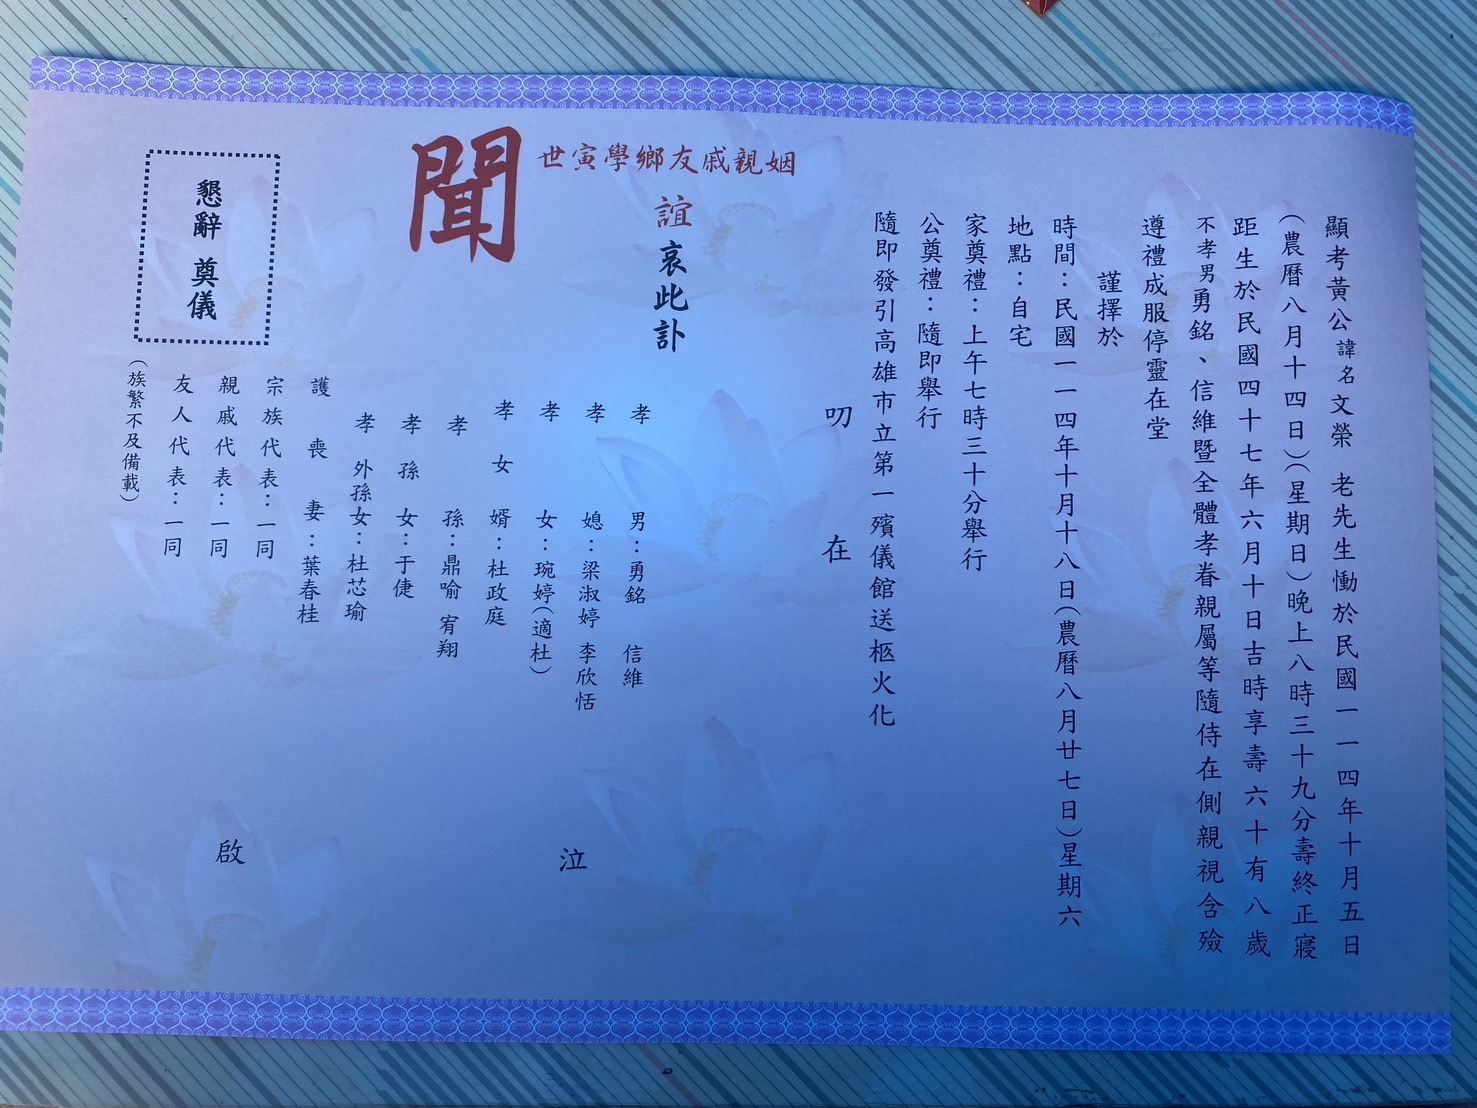 顯考黃公諱名文榮 老先生慟於民國一一四年十月五日
(農曆八月十四日)(星期日)晚上八時三十九分壽終正寢
距生於民國四十七年六月十日吉時享壽六十有八歲
不孝男勇銘、信維暨全體孝眷親屬等隨侍在側親視含殮
遵禮成服停靈在堂
謹擇於
時間：民國一一四年十月十八日(農曆八月廿七日)星期六
地點：自宅
家奠禮：上午七時三十分舉行
公奠禮：隨即舉行
隨即發引高雄市立第一殯儀館送柩火化
叨在
姻親戚友鄉學寅世
誼哀此訃
聞
孝男：勇銘 信維
孝媳：梁淑婷 李欣恬
孝女：琬婷(適杜)
孝女婿：杜政庭
孝孫：鼎喻 宥翔
孝孫女：于倢
孝外孫女：杜芯瑜
護喪妻：葉春桂
宗族代表：一同
親戚代表：一同
友人代表：一同
(族繁不及備載)
泣
啟
懇辭 奠儀